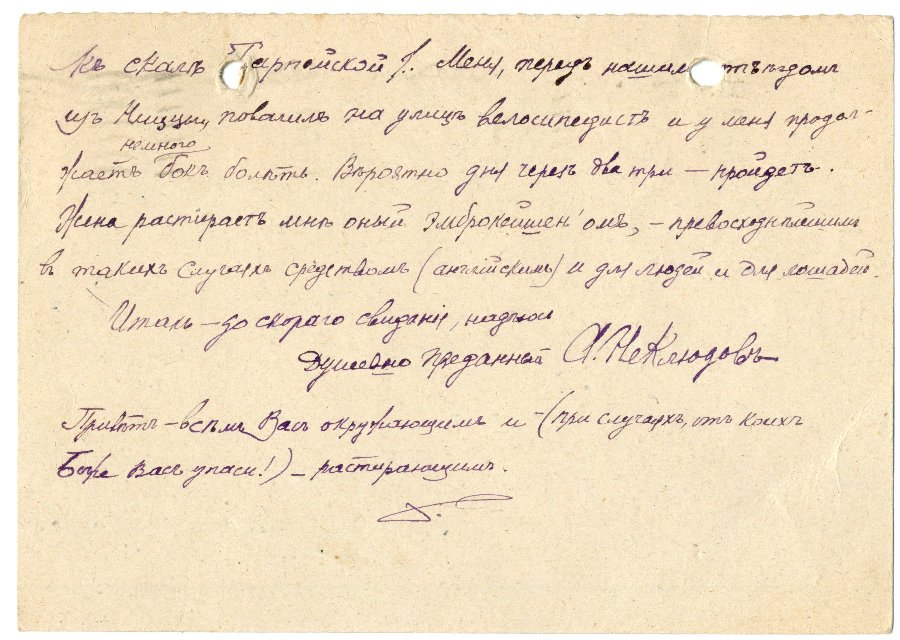 къ скалѣ Тарпейской!. Меня, передъ нашимъ отъѣздомъ
изъ Ниццы, повалилъ на улицѣ велосипедистъ и у меня продол-
немного
жаетъ бокъ болѣть. Вѣроятно дня черезъ два три — пройдетъ.
Жена растираетъ мнѣ оный Эмброкейшен'омъ, — превосходнѣйшимъ
въ такихъ случаяхъ средствомъ (англійскимъ) и для людей и для лошадей.
Итакъ — до скораго свиданія, надѣюсь
Душевно преданный А. Неклюдовъ
Привѣтъ — всѣмъ Васъ окружающимъ и — (при случаяхъ, отъ коихъ
Боже Васъ упаси!) — растирающимъ.